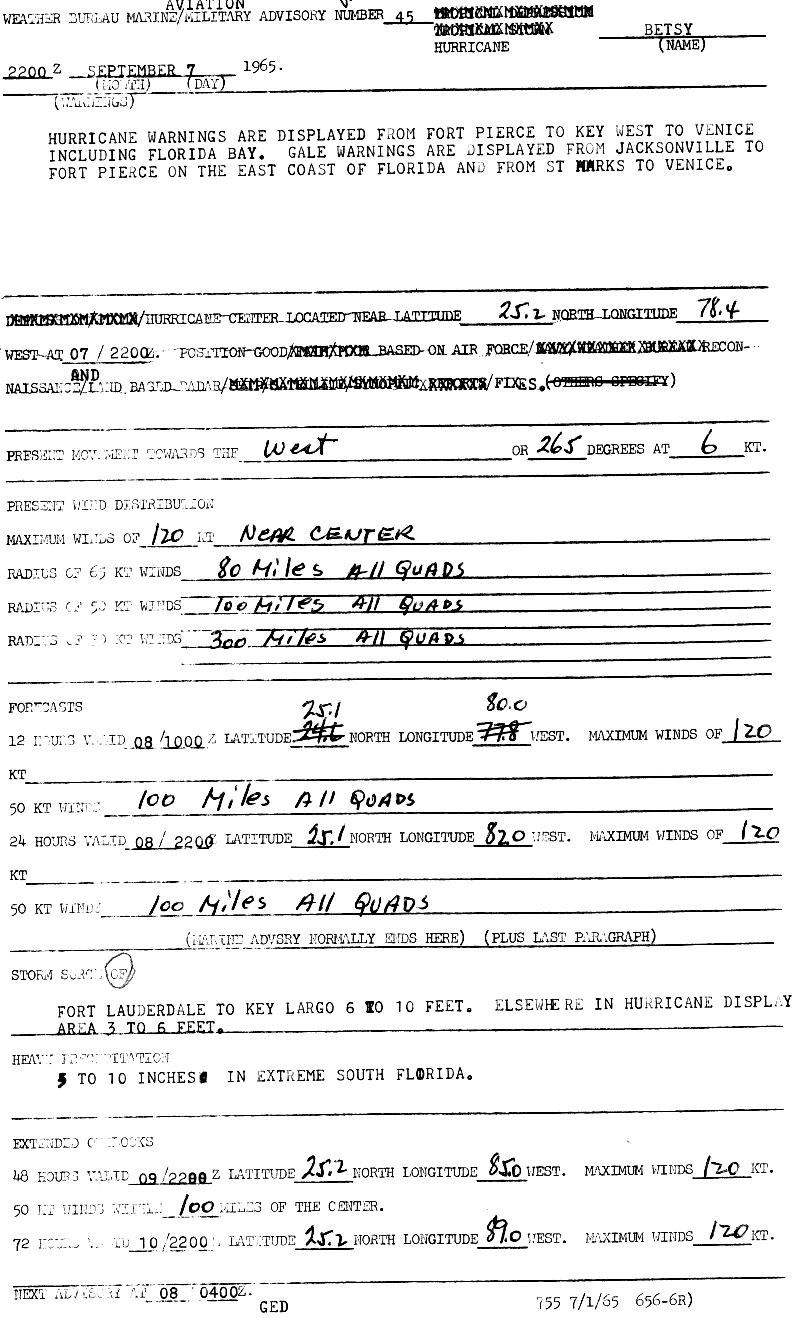 AVIATION
WEATHER BUREAU MARINE/MILITARY ADVISORY NUMBER 45
HURRICANE
BETSY
(NAME)
2200 Z SEPTEMBER 7 1965.
(MONTH) (DAY)
(WARNINGS)
HURRICANE WARNINGS ARE DISPLAYED FROM FORT PIERCE TO KEY WEST TO VENICE
INCLUDING FLORIDA BAY. GALE WARNINGS ARE DISPLAYED FROM JACKSONVILLE TO
FORT PIERCE ON THE EAST COAST OF FLORIDA AND FROM ST MARKS TO VENICE.
/HURRICANE CENTER LOCATED NEAR LATITUDE 25.2 NORTH LONGITUDE 78.4
WEST AT 07 / 2200Z. POSITION GOOD/ BASED ON AIR FORCE/ RECON-
AND
NAISSANCE/LAND BASED RADAR/ /FIXES.(OTHERS SPECIFY)
PRESENT MOVEMENT TOWARDS THE West OR 265 DEGREES AT 6 KT.
PRESENT WIND DISTRIBUTION
MAXIMUM WINDS OF 120 KT NEAR CENTER
RADIUS OF 65 KT WINDS 80 Miles All QUADS
RADIUS OF 50 KT WINDS 100 Miles All QUADS
RADIUS OF 30 KT WINDS 300 Miles All QUADS
FORECASTS
25.1 80.0
12 HOURS VALID 08 /1000 Z LATITUDE 24.6 NORTH LONGITUDE 77.8 WEST. MAXIMUM WINDS OF 120
KT
50 KT WINDS 100 Miles All QUADS
24 HOURS VALID 08 / 2200 LATITUDE 25.1 NORTH LONGITUDE 82.0 WEST. MAXIMUM WINDS OF 120
KT
50 KT WINDS 100 Miles All QUADS
(MARINE ADVSRY NORMALLY ENDS HERE) (PLUS LAST PARAGRAPH)
STORM SURGE OF
FORT LAUDERDALE TO KEY LARGO 6 TO 10 FEET. ELSEWHERE IN HURRICANE DISPLAY
AREA 3 TO 6 FEET.
HEAVY PRECIPITATION
5 TO 10 INCHES IN EXTREME SOUTH FLORIDA.
EXTENDED OUTLOOKS
48 HOURS VALID 09/2200 Z LATITUDE 25.2 NORTH LONGITUDE 85.0 WEST. MAXIMUM WINDS 120 KT.
50 KT WINDS WITHIN 100 MILES OF THE CENTER.
72 HOURS VALID 10 /2200 Z LATITUDE 25.2 NORTH LONGITUDE 89.0 WEST. MAXIMUM WINDS 120 KT.
NEXT ADVISORY AT 08 0400Z.
GED
755 7/1/65 656-6R)